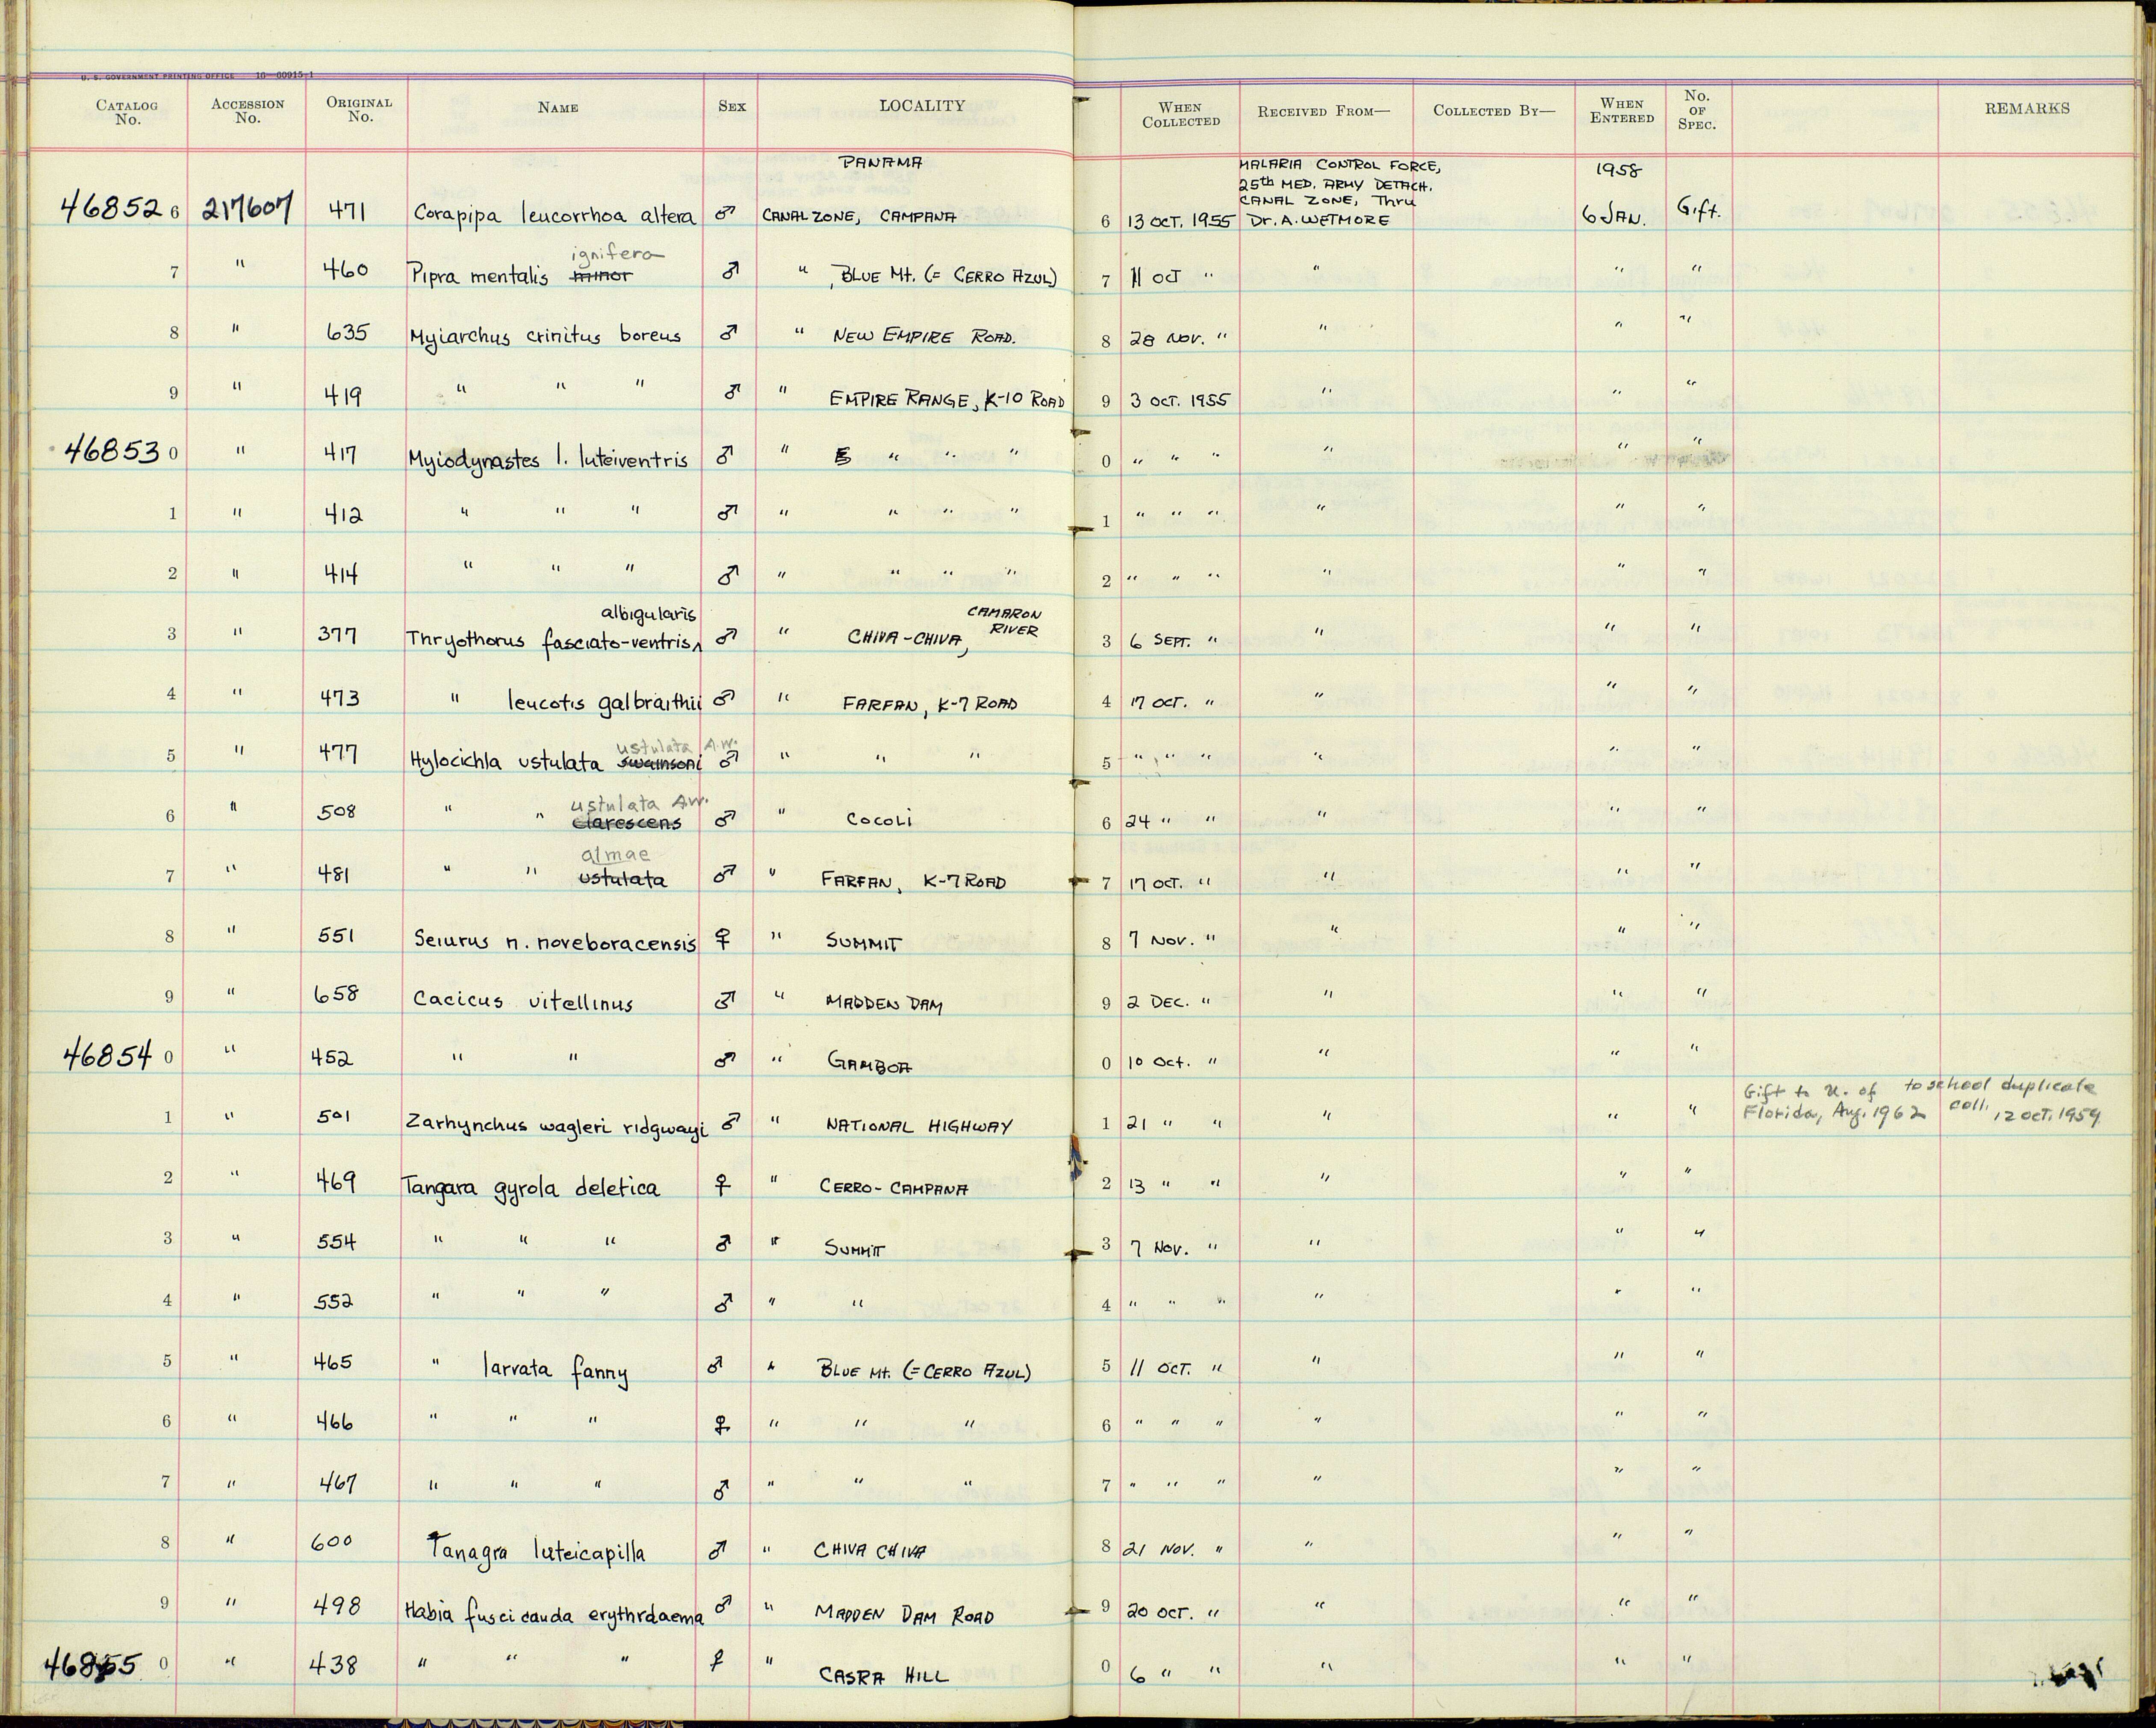 U. S. GOVERNMENT PRINTING OFFICE 16—60915-1
CATALOG No. ACCESSION No. ORIGINAL No. NAME SEX LOCALITY WHEN COLLECTED RECEIVED FROM— COLLECTED BY— WHEN ENTERED No. OF SPEC. REMARKS
PANAMA MALARIA CONTROL FORCE, 1958
25th MED. ARMY DETACH.
CANAL ZONE, Thru
46852 6 217607 471 Corapipa leucorrhoa altera ♂ CANAL ZONE, CAMPANA 6 13 OCT. 1955 Dr. A. WETMORE 6 JAN. Gift.
ignifera
7 " 460 Pipra mentalis minor ♂ " , BLUE Mt. (= CERRO AZUL) 7 11 OCT " " " "
8 " 635 Myiarchus crinitus boreus ♂ " NEW EMPIRE ROAD. 8 28 NOV. " " " "
9 " 419 " " " ♂ " EMPIRE RANGE, K-10 ROAD 9 3 OCT. 1955 " " "
46853 0 " 417 Myiodynastes l. luteiventris ♂ " E " " " 0 " " " " " "
1 " 412 " " " ♂ " " " " 1 " " " " " "
2 " 414 " " " ♂ " " " " 2 " " " " " "
albigularis CAMARON
3 " 377 Thryothorus fasciato-ventris^ ♂ " CHIVA-CHIVA, RIVER 3 6 SEPT. " " " "
4 " 473 " leucotis galbraithii ♂ " FARFAN, K-7 ROAD 4 17 OCT. " " " "
ustulata A.W.
5 " 477 Hylocichla ustulata swainsoni ♂ " " " 5 " " " " " "
ustulata AW.
6 " 508 " " clarescens ♂ " COCOLI 6 24 " " " " "
almae
7 " 481 " " ustulata ♂ " FARFAN, K-7 ROAD 7 17 OCT. " " " "
8 " 551 Seiurus n. noveboracensis ♀ " SUMMIT 8 7 NOV. " " " "
9 " 658 Cacicus vitellinus ♂ " MADDEN DAM 9 2 DEC. " " " "
46854 0 " 452 " " ♂ " GAMBOA 0 10 Oct. " " " "
Gift to U. of to school duplicate
1 " 501 Zarhynchus wagleri ridgwayi ♂ " NATIONAL HIGHWAY 1 21 " " " " " Florida, Aug. 1962 coll. 12 OCT. 1959
2 " 469 Tangara gyrola deletica ♀ " CERRO-CAMPANA 2 13 " " " " "
3 " 554 " " " ♂ " SUMMIT 3 7 NOV. " " " "
4 " 552 " " " ♂ " " 4 " " " " " "
5 " 465 " larvata fanny ♂ " BLUE Mt. (=CERRO AZUL) 5 11 OCT. " " " "
6 " 466 " " " ♀ " " " 6 " " " " " "
7 " 467 " " " ♂ " " " 7 " " " " " "
8 " 600 Tanagra luteicapilla ♂ " CHIVA CHIVA 8 21 NOV. " " " "
9 " 498 Habia fuscicauda erythrolaema ♂ " MADDEN DAM ROAD 9 20 OCT. " " " "
46855 0 " 438 " " " ♀ " CASRA HILL 0 6 " " " " "